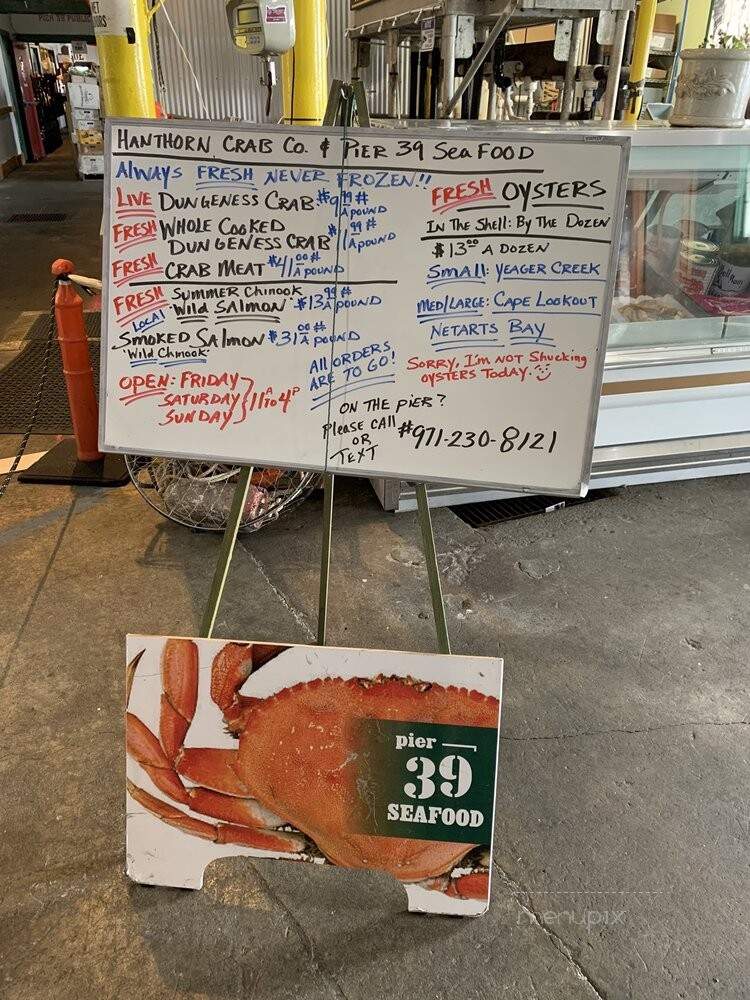 HANTHORN CRAB CO. & PIER 39 SEAFOOD
ALWAYS FRESH NEVER FROZEN!!
LIVE DUNGENESS CRAB $9.99 # A POUND
FRESH WHOLE COOKED
DUNGENESS CRAB $11.99 # A POUND
FRESH CRAB MEAT $41.00 # A POUND
FRESH SUMMER CHINOOK
LOCAL "Wild SAlmon" $13.99 # A POUND
SMOKED SAlmon $31.00 # A POUND
"Wild Chinook"
All ORDERS
ARE TO GO!
OPEN: FRIDAY
SATURDAY
SUNDAY
11A TO 4P
ON THE PIER?
Please CAll
OR
TEXT
#971-230-8121
FRESH OYSTERS
IN THE Shell: By THE DOZEN
$13.00 A DOZEN
Small: YEAGER CREEK
MED/LARGE: CAPE LOOKOUT
NETARTS BAY
SORRY, I'm NOT Shucking
OYSTERS TODAY.
pier
39
SEAFOOD
menupix